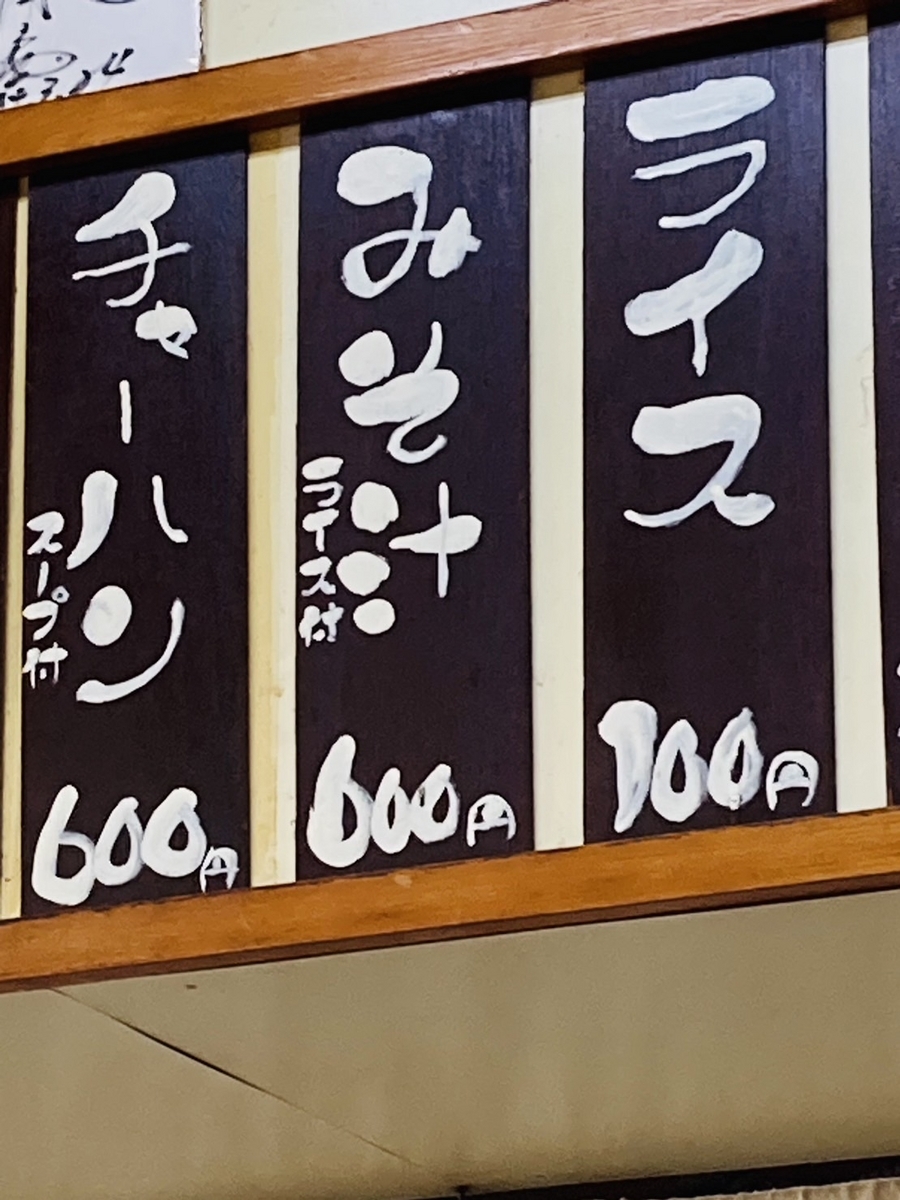 ライス
700円
みそ汁
ライス付
600円
チャーハン
スープ付
600円